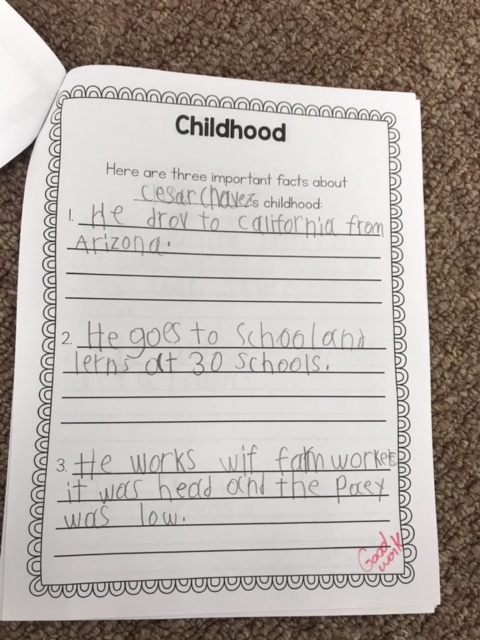 Childhood
Here are three important facts about
cesar chavez's childhood:
1. He drov to california from
Arizona.
2. He goes to school and
lerns at 30 schools.
3. He works wif fam workets
it was head and the paey
was low.
Good
work